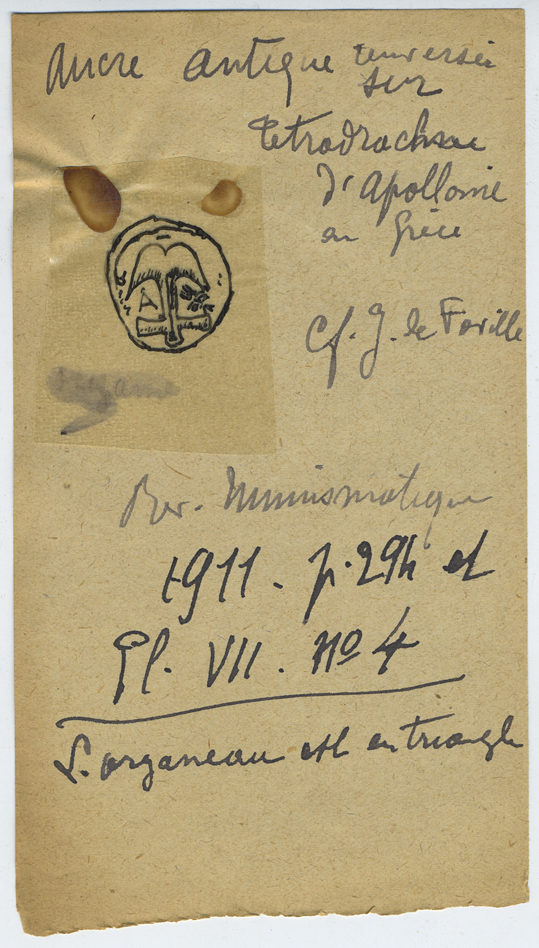 Ancre antique renversée
sur
tétradrachme
d'Apollonie
en Grèce
A
Cf. J. de Foville
Rev. Numismatique
1911. p. 294 et
Pl. VII. No 4
L'organeau est en triangle